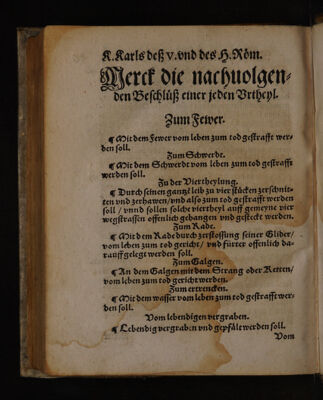 K. Karls deß v. vnd des H. Röm.
Merck die nachuolgen-
den Beschlüß einer jeden Vrtheyl.
Zum Fewer.
¶ Mit dem Fewer vom leben zum tod gestrafft wer-
den soll.
Zum Schwerdt.
¶ Mit dem Schwerdt vom leben zum tod gestrafft
werden soll.
Zu der Viertheylung.
¶ Durch seinen gantzẽ leib zu vier stücken zerschnit-
ten vnd zerhawen / vnd also zum tod gestrafft werden
soll / vnnd sollen solche viertheyl auff gemeyne vier
wegstrassen offenlich gehangen vnd gesteckt werden.
Zum Rade.
¶ Mit dem Rade durch zerstossung seiner Glider /
vom leben zum tod gericht / vnd fürter offenlich da-
rauff gelegt werden soll.
Zum Galgen.
¶ An dem Galgen mit dem Strang oder Ketten /
vom leben zum tod gericht werden.
Zum ertrencken.
¶ Mit dem wasser vom leben zum tod gestrafft wer-
den soll.
Vom lebendigen vergraben.
¶ Lebendig vergraben vnd gepfält werden soll.
Vom